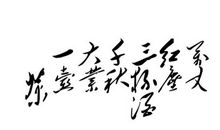 万丈
红尘
三杯酒
千秋
大业
一壶
茶